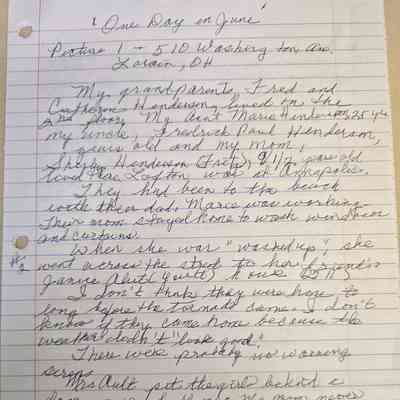 ' One Day in June '
Picture 1 - 510 Washington Ave.
Lorain, OH
My grandparents, Fred and
Catherine Henderson, lived on the
2nd floor. My Aunt Marie Henderson, 25 yrs
my uncle, Fredrick Paul Henderson,
years old and my mom,
Shirley Henderson 9 1/2 years old
lived was at Annapolis.
They had been to the beach
with their dad. Marie was working.
Their mom stayed home to wash windows
and curtains.
When she was "washed up", she
#2 went across the street to her friend's
Janice house (511)
I don't think they were home to
long before the tornado came. I don't
know if they came home because the
weather didn't "look good".
There were probably no warning
sirens.
Mrs Ault put the girls behind a
my mom never